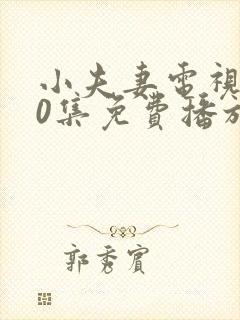 小夫妻電視
0集免費播放
郭秀賓